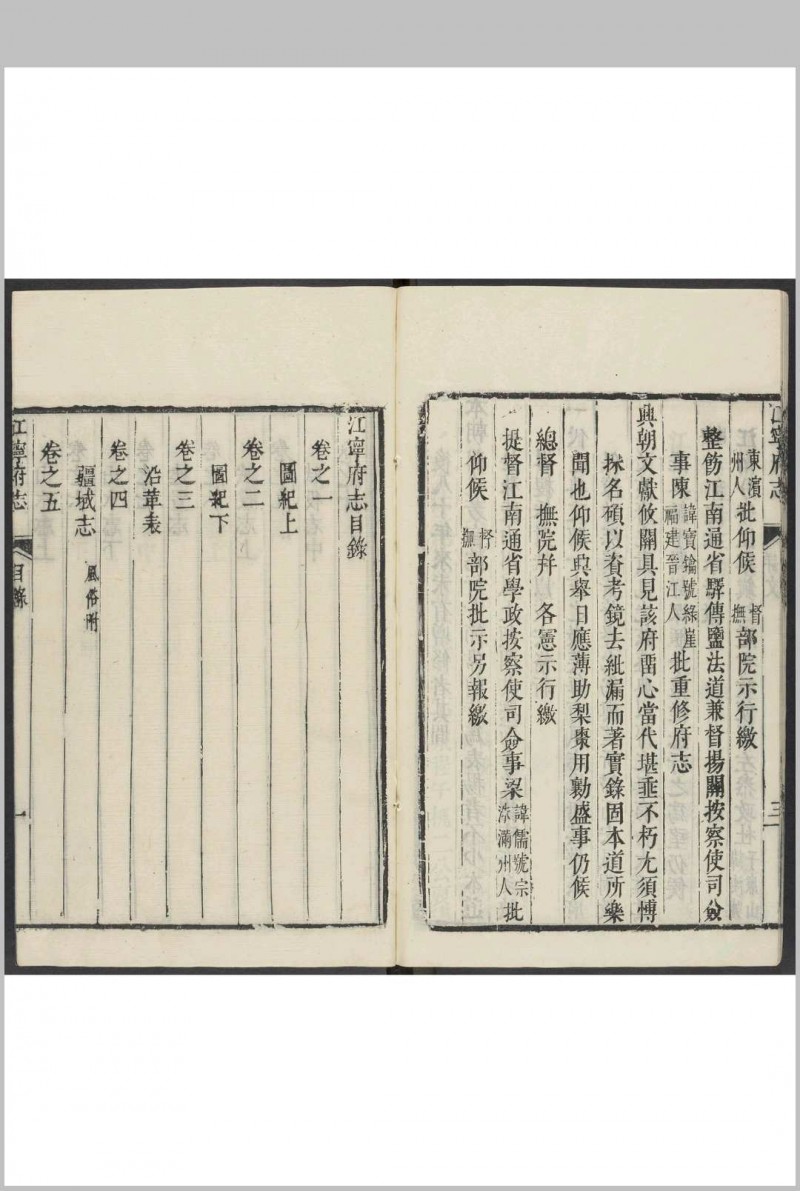 江寧府志
三
東濱
州人批仰候督
撫部院示行繳
整飭江南通省驛傳鹽法道兼督揚關按察使司僉
事陳諱寶鑰號綠崖
福建晉江人批重修府志
興朝文獻攸關具見該府留心當代堪垂不朽尢須慱
採名碩以資考鏡去紕漏而著實錄固本道所樂
聞也仰候典舉日應薄助梨棗用勷盛事仍候
總督 撫院幷 各憲示行繳
提督江南通省學政按察使司僉事梁諱儒號宗
洙滿州人批
仰候督
撫部院批示另報繳
江寧府志目錄
卷之一
圖紀上
卷之二
圖紀下
卷之三
沿革表
卷之四
疆域志 風俗附
卷之五
江寧府志
目錄
一